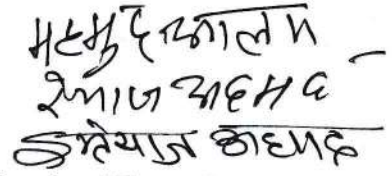 महमुद आलम
रेयाज अहमद
इम्तेयाज अहमद